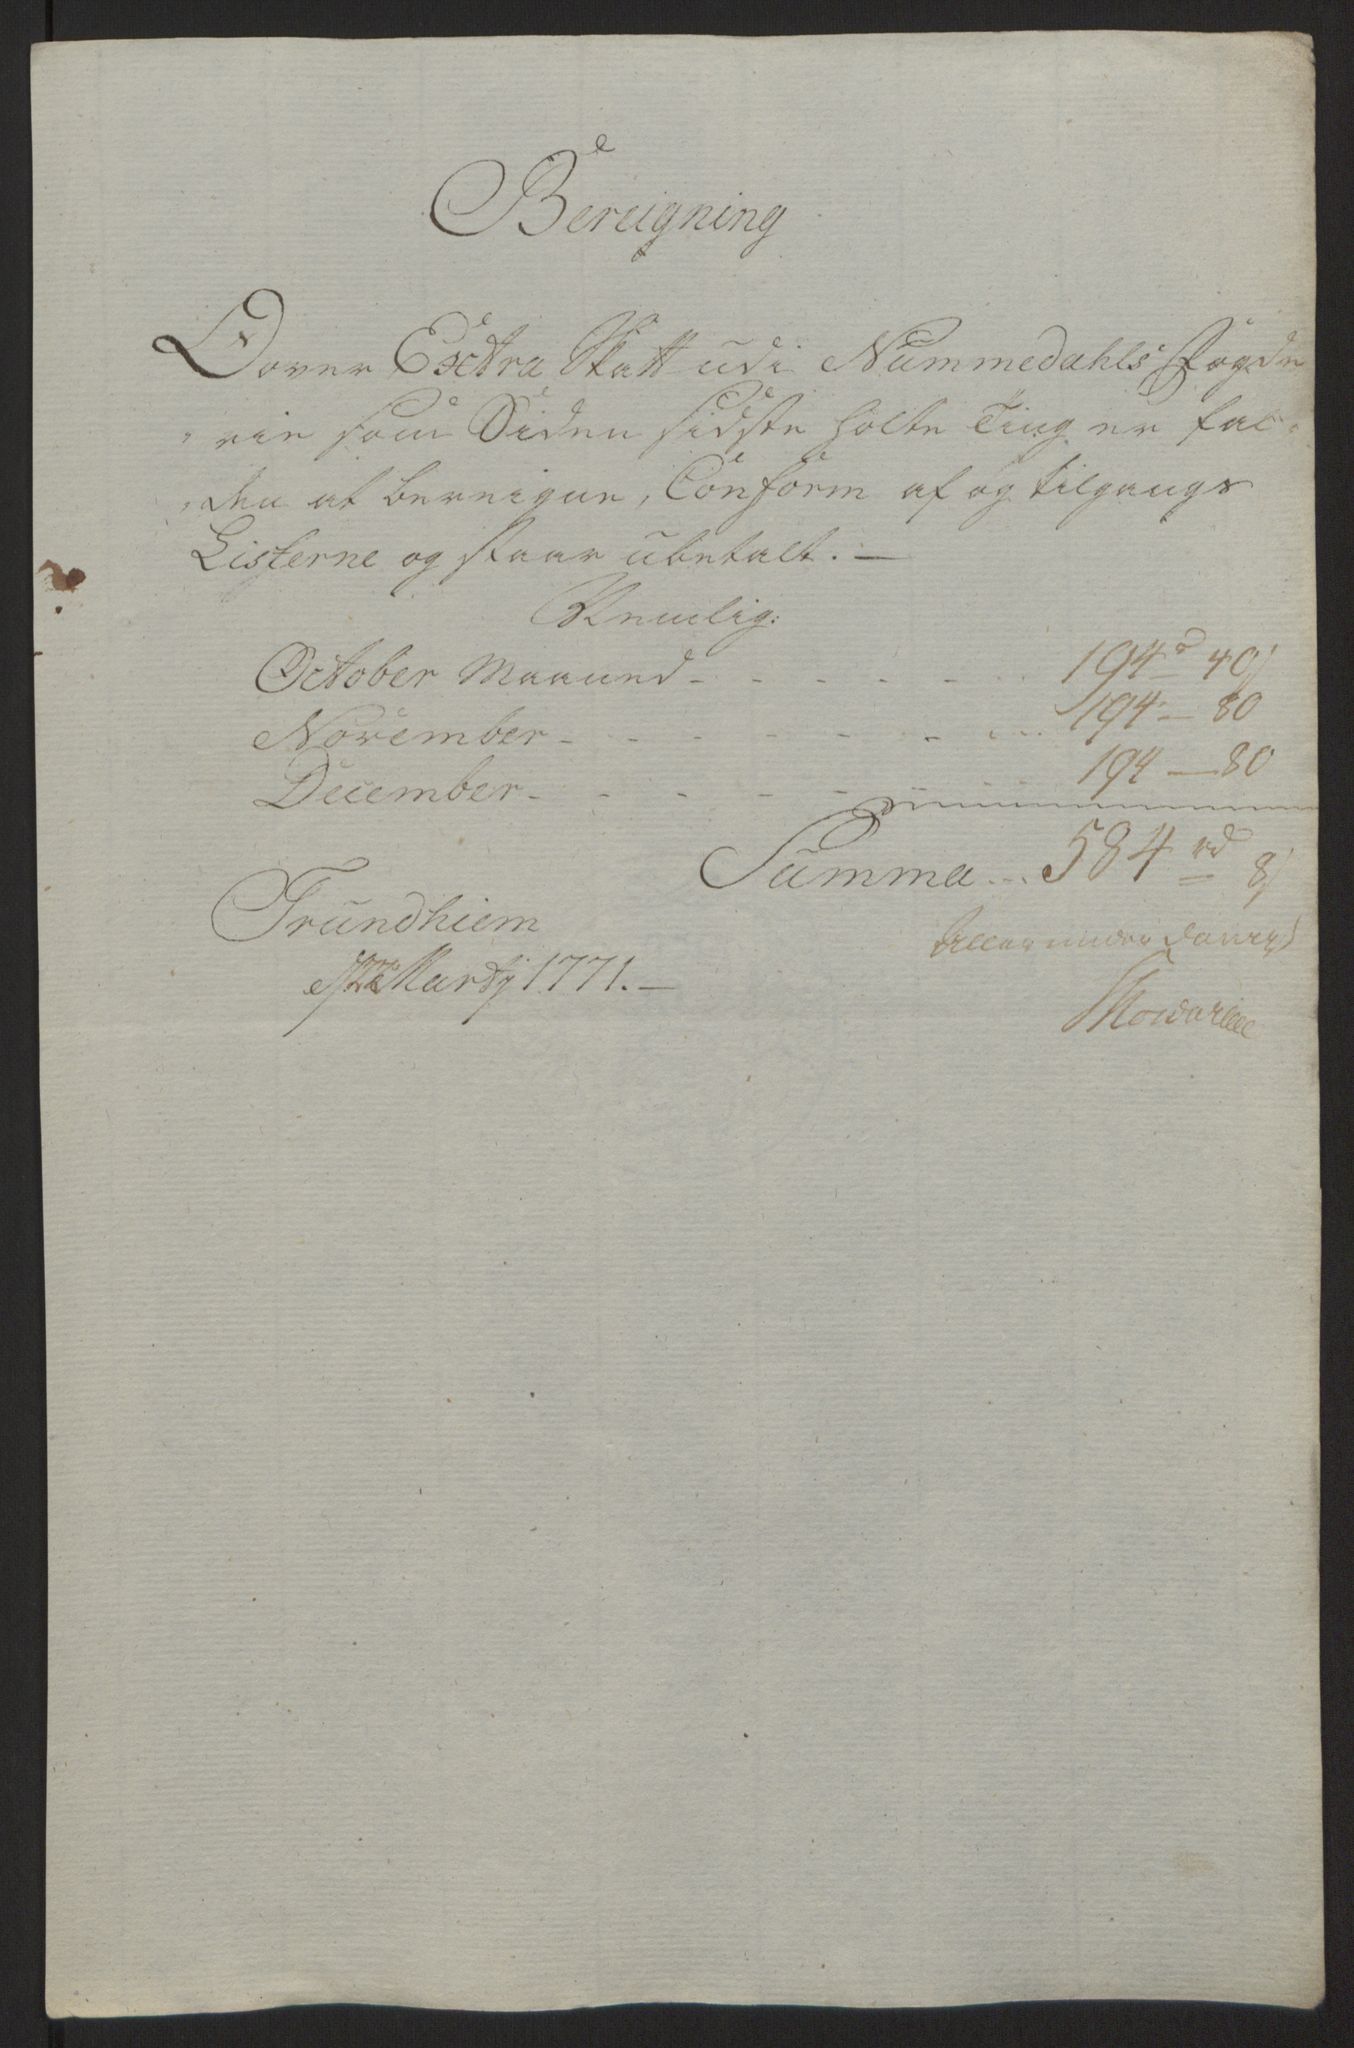 Bereigning
Over Exctra Skatt udi Nummedahls Fogde
rie som Siden sidste holte Ting er fal-
den at bereigne, Conform af og tilgangs
Listerne og staar ubetalt. —
Nemlig:
October Maaned - - - - - - 194 d 40 s
November - - - - - - - 194 — 80
December - - - - - - - 194 — 80
Summa ... 584 rd 8 s
Trundhiem
Martij 1771. —